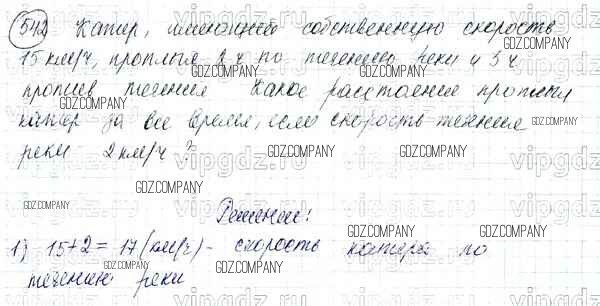 542 Катер, имеющий собственную скорость
15 км/ч, проплыл 2 ч по течению реки и 3 ч
против течения Какое расстояние проплыл
катер за все время, если скорость течения
реки 2 км/ч ?
Решение!
1) 15+2 = 17 (км/ч) - скорость катера по
течению реки